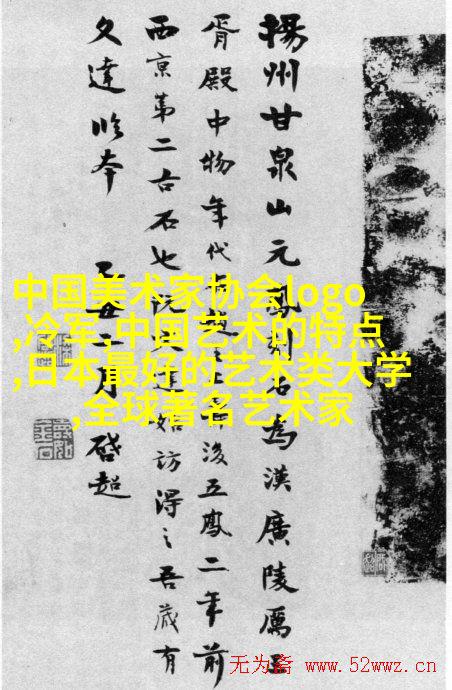 揚州甘泉山元鳳刻石為漢廣陵厲王
胥殿中物年代後五鳳二年前
西京第二古石也始訪得之吾藏有
文達本
啓超
中国美术家协会logo
,冷军,中国艺术的特点
,日本最好的艺术类大学
,全球著名艺术家
无为斋 www.52wwz.cn